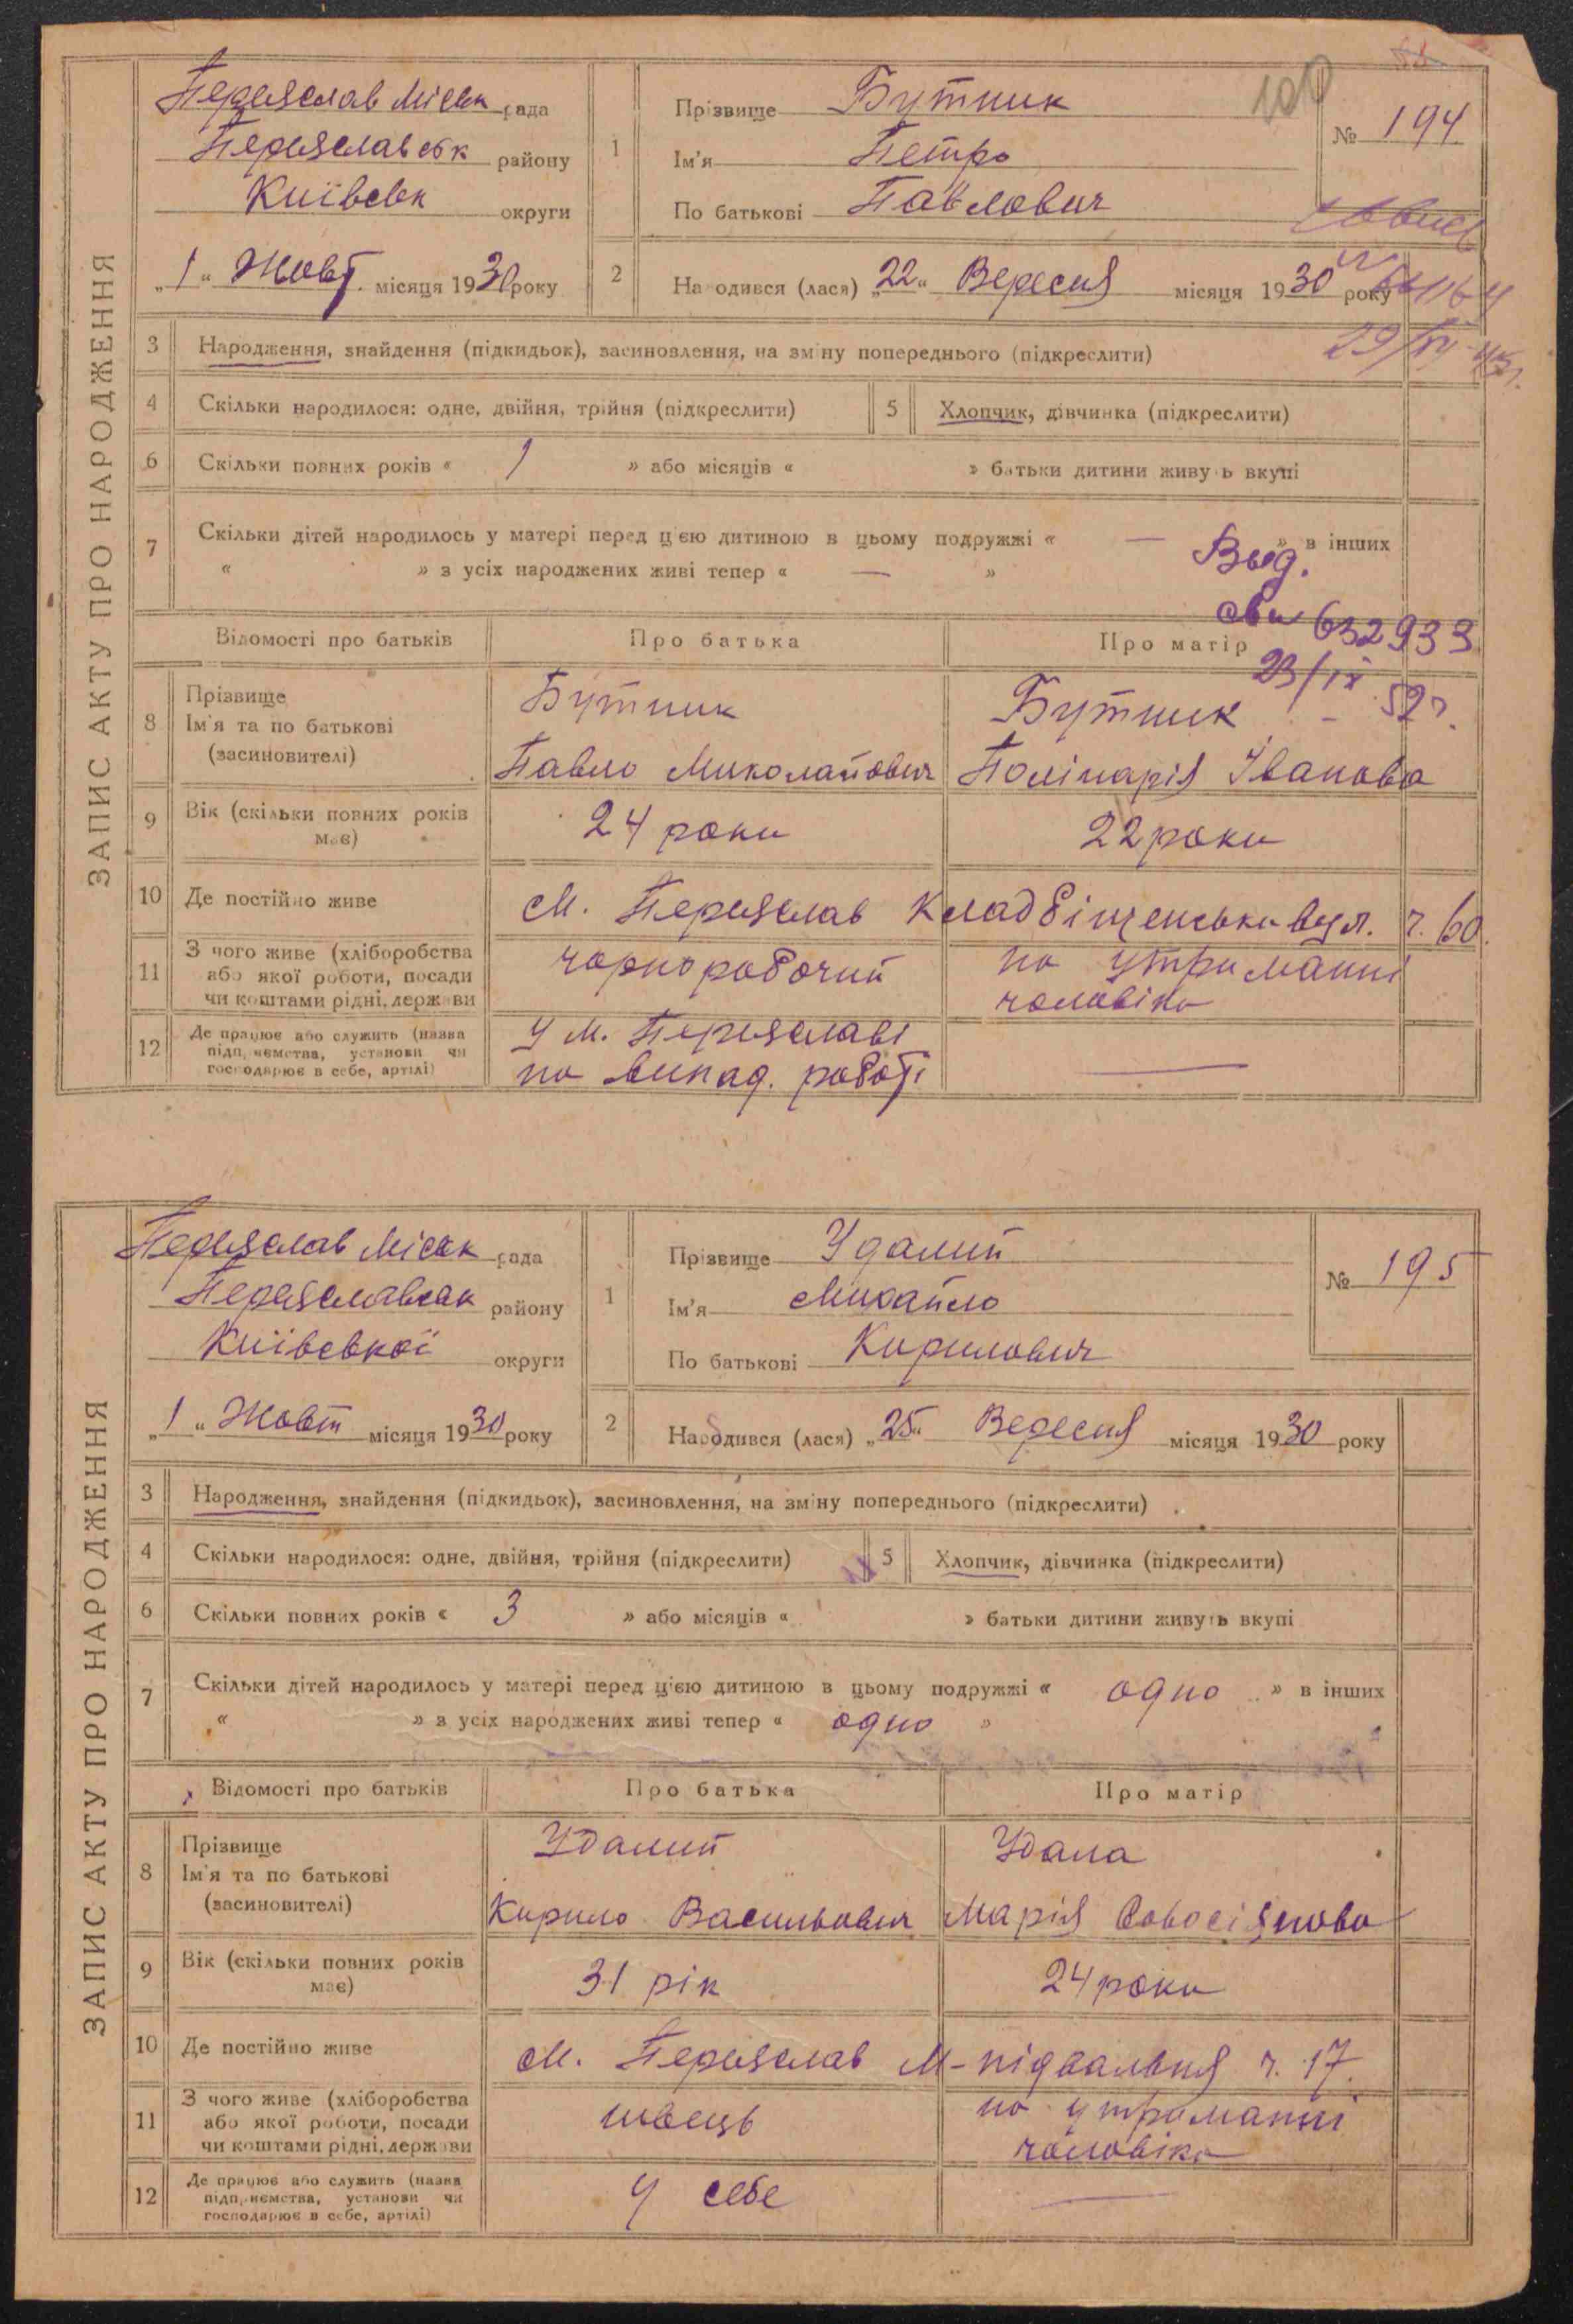 ЗАПИС АКТУ ПРО НАРОДЖЕННЯ
Переяслав Міськ рада
Переяславськ району
Київськ округи
„1“ Жовт. місяця 1930 року
1 Прізвище Бутник
Ім'я Петро
По батькові Павлович
100
№ 194
2 Народився (лася) „22“ Вересня місяця 1930 року
29/IV 45г.
3 Народження, знайдення (підкидьок), засиновлення, на зміну попереднього (підкреслити)
4 Скільки народилося: одне, двійня, трійня (підкреслити) 5 Хлопчик, дівчинка (підкреслити)
6 Скільки повних років « 1 » або місяців « » батьки дитини живуть вкупі
7 Скільки дітей народилось у матері перед цією дитиною в цьому подружжі « — » в інших
« » з усіх народжених живі тепер « — »
Выд.
сви 632933
23/IX 52г.
Відомості про батьків Про батька Про матір
8 Прізвище
Ім'я та по батькові
(засиновителі)
Бутник
Павло Миколайович
Бутник
Полінарія Іванова
9 Вік (скільки повних років має) 24 роки 22 роки
10 Де постійно живе м. Переяслав Кладбіщенська вул. ч. 60.
11 З чого живе (хліборобства
або якої роботи, посади
чи коштами рідні, держави
чорноробочий
на утриманні
чоловіка
12 Де працює або служить (назва
підприємства, установи чи
господарює в себе, артілі)
У м. Переяславі
по випад. роботі
—
ЗАПИС АКТУ ПРО НАРОДЖЕННЯ
Переяслав Міськ рада
Переяславськ району
Київської округи
„1“ Жовт місяця 1930 року
1 Прізвище Удалий
Ім'я Михайло
По батькові Кирилович
№ 195
2 Народився (лася) „25“ Вересня місяця 1930 року
3 Народження, знайдення (підкидьок), засиновлення, на зміну попереднього (підкреслити)
4 Скільки народилося: одне, двійня, трійня (підкреслити) 5 Хлопчик, дівчинка (підкреслити)
6 Скільки повних років « 3 » або місяців « » батьки дитини живуть вкупі
7 Скільки дітей народилось у матері перед цією дитиною в цьому подружжі « одно » в інших
« » з усіх народжених живі тепер « одно »
Відомості про батьків Про батька Про матір
8 Прізвище
Ім'я та по батькові
(засиновителі)
Удалий
Кирило Васильович
Удала
Марія Савосіянова
9 Вік (скільки повних років має) 31 рік 24 роки
10 Де постійно живе м. Переяслав М-підвальня ч. 17.
11 З чого живе (хліборобства
або якої роботи, посади
чи коштами рідні, держави
швець
на утриманні
чоловіка
12 Де працює або служить (назва
підприємства, установи чи
господарює в себе, артілі)
У себе
—